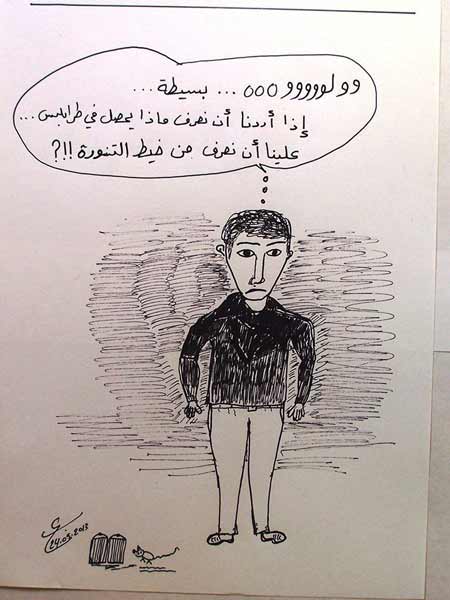 وولووووو ٥٥٥ ... بسيطة ...
إذا أردنا أن نعرف ماذا يحصل في طرابلس ...
علينا أن نعرف من خيط التنورة !!؟
24.05.2013